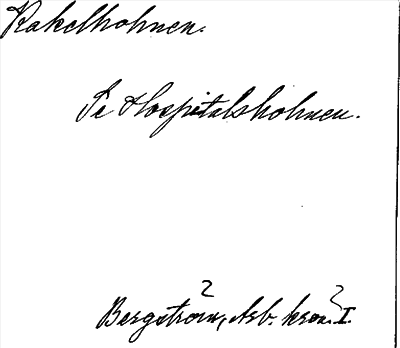 Kakelhohnen.
Se Hospitalshohnen.
Bergström, Arb. kron. I.